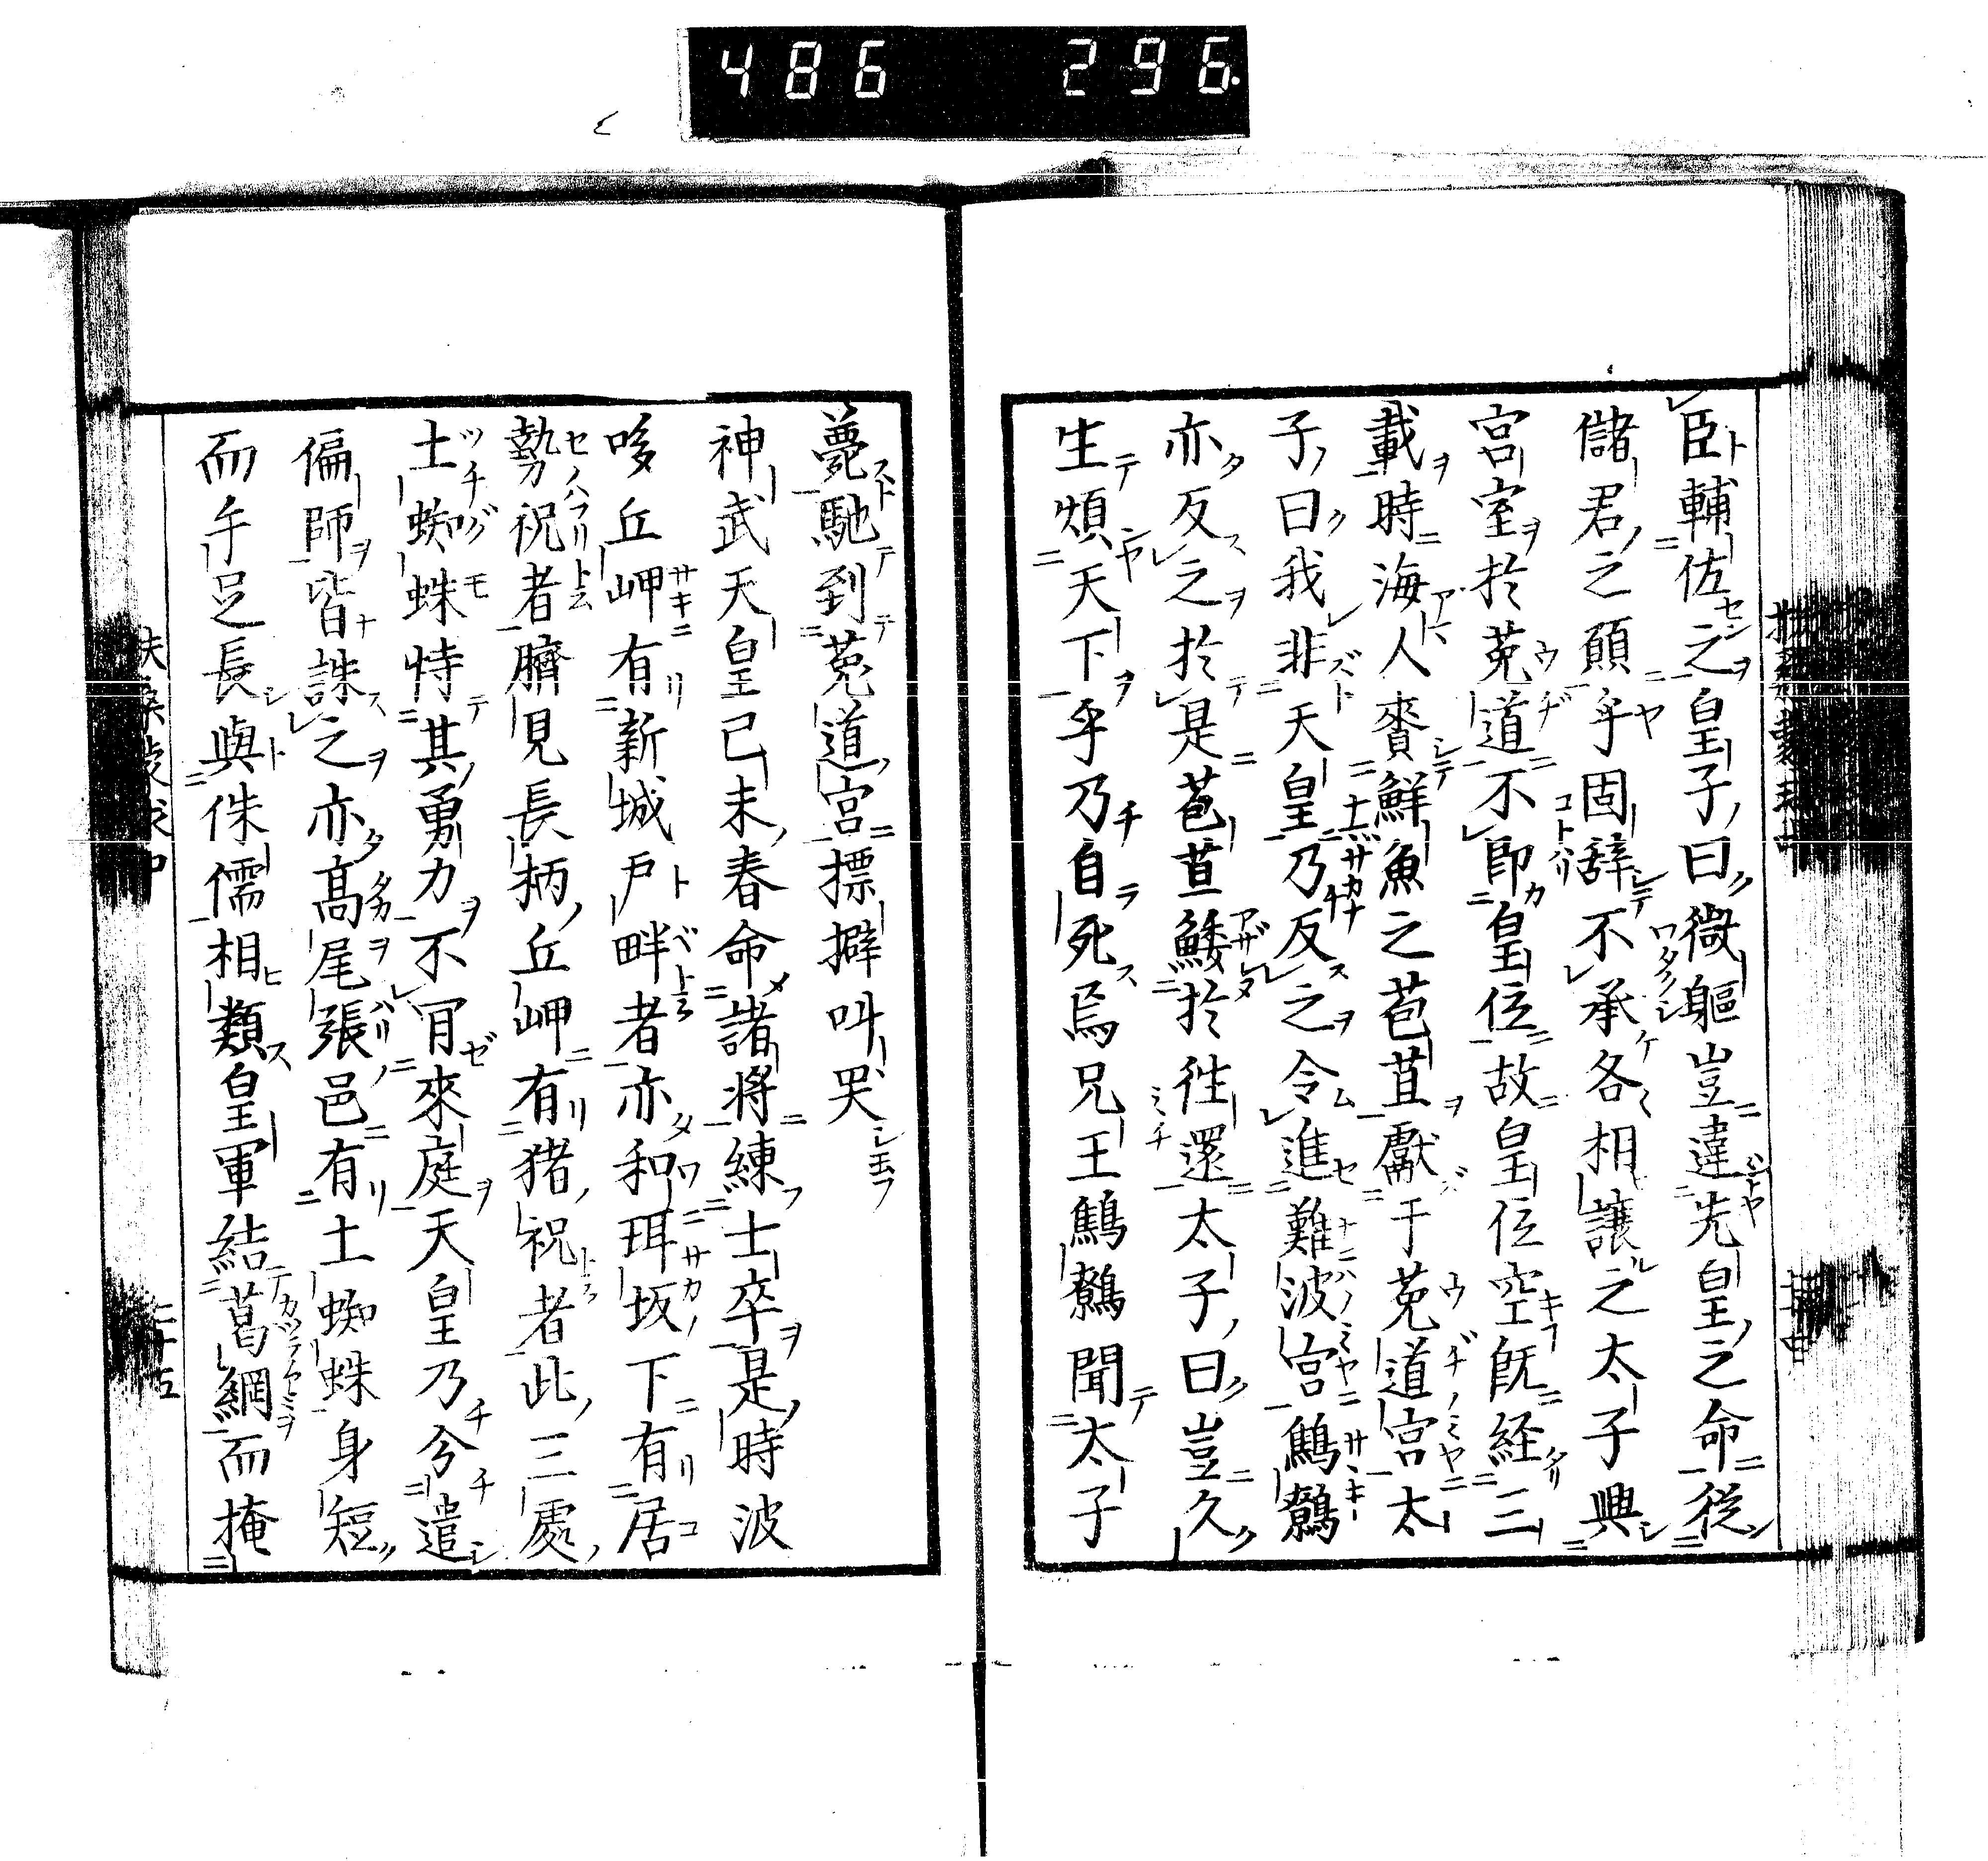 486 296.
臣輔佐之皇子曰微軀豈違先皇之命従
儲君之願乎固辞不承各相譲之太子興
宮室於菟道不即皇位故皇位空既経三
載時海人賚鮮魚之苞苴獻于菟道宮太
子曰我非天皇乃反之令進難波宮鷦鷯
亦反之於是苞苴鯘於徃還太子曰豈久
生煩天下乎乃自死焉兄王鷦鷯聞太子
薨馳到菟道宮摽擗叫哭
神武天皇己未春命諸將練士卒是時波
哆丘岬有新城戸畔者亦和珥坂下有居
勢祝者臍見長柄丘岬有猪祝者此三處
土蜘蛛恃其勇力不肎來庭天皇乃分遣
偏師皆誅之亦髙尾張邑有土蜘蛛身短
而手足長與侏儒相類皇軍結葛網而掩